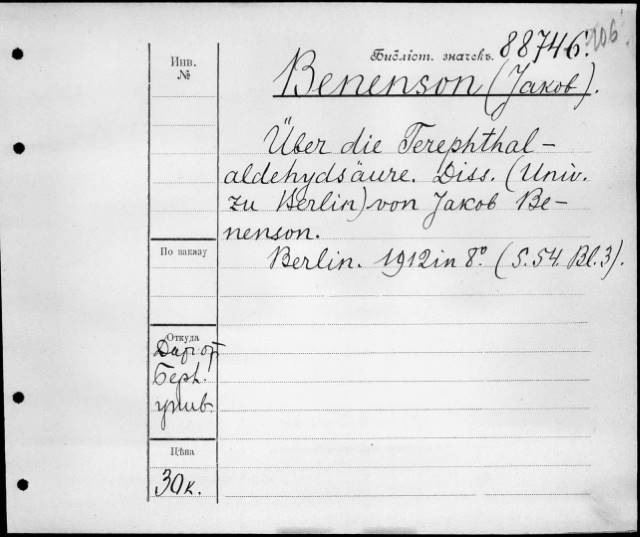 Инв. №
Библіот. значекъ. 88746
Benenson (Jakob).
Über die Terephthal-
aldehydsäure. Diss. (Univ.
zu Berlin) von Jakob Be-
nenson.
Berlin. 1912 in 8° (S. 54. Bl. 3).
По заказу
Откуда
Дар от
Берл.
унив.
Цѣна
30 к.